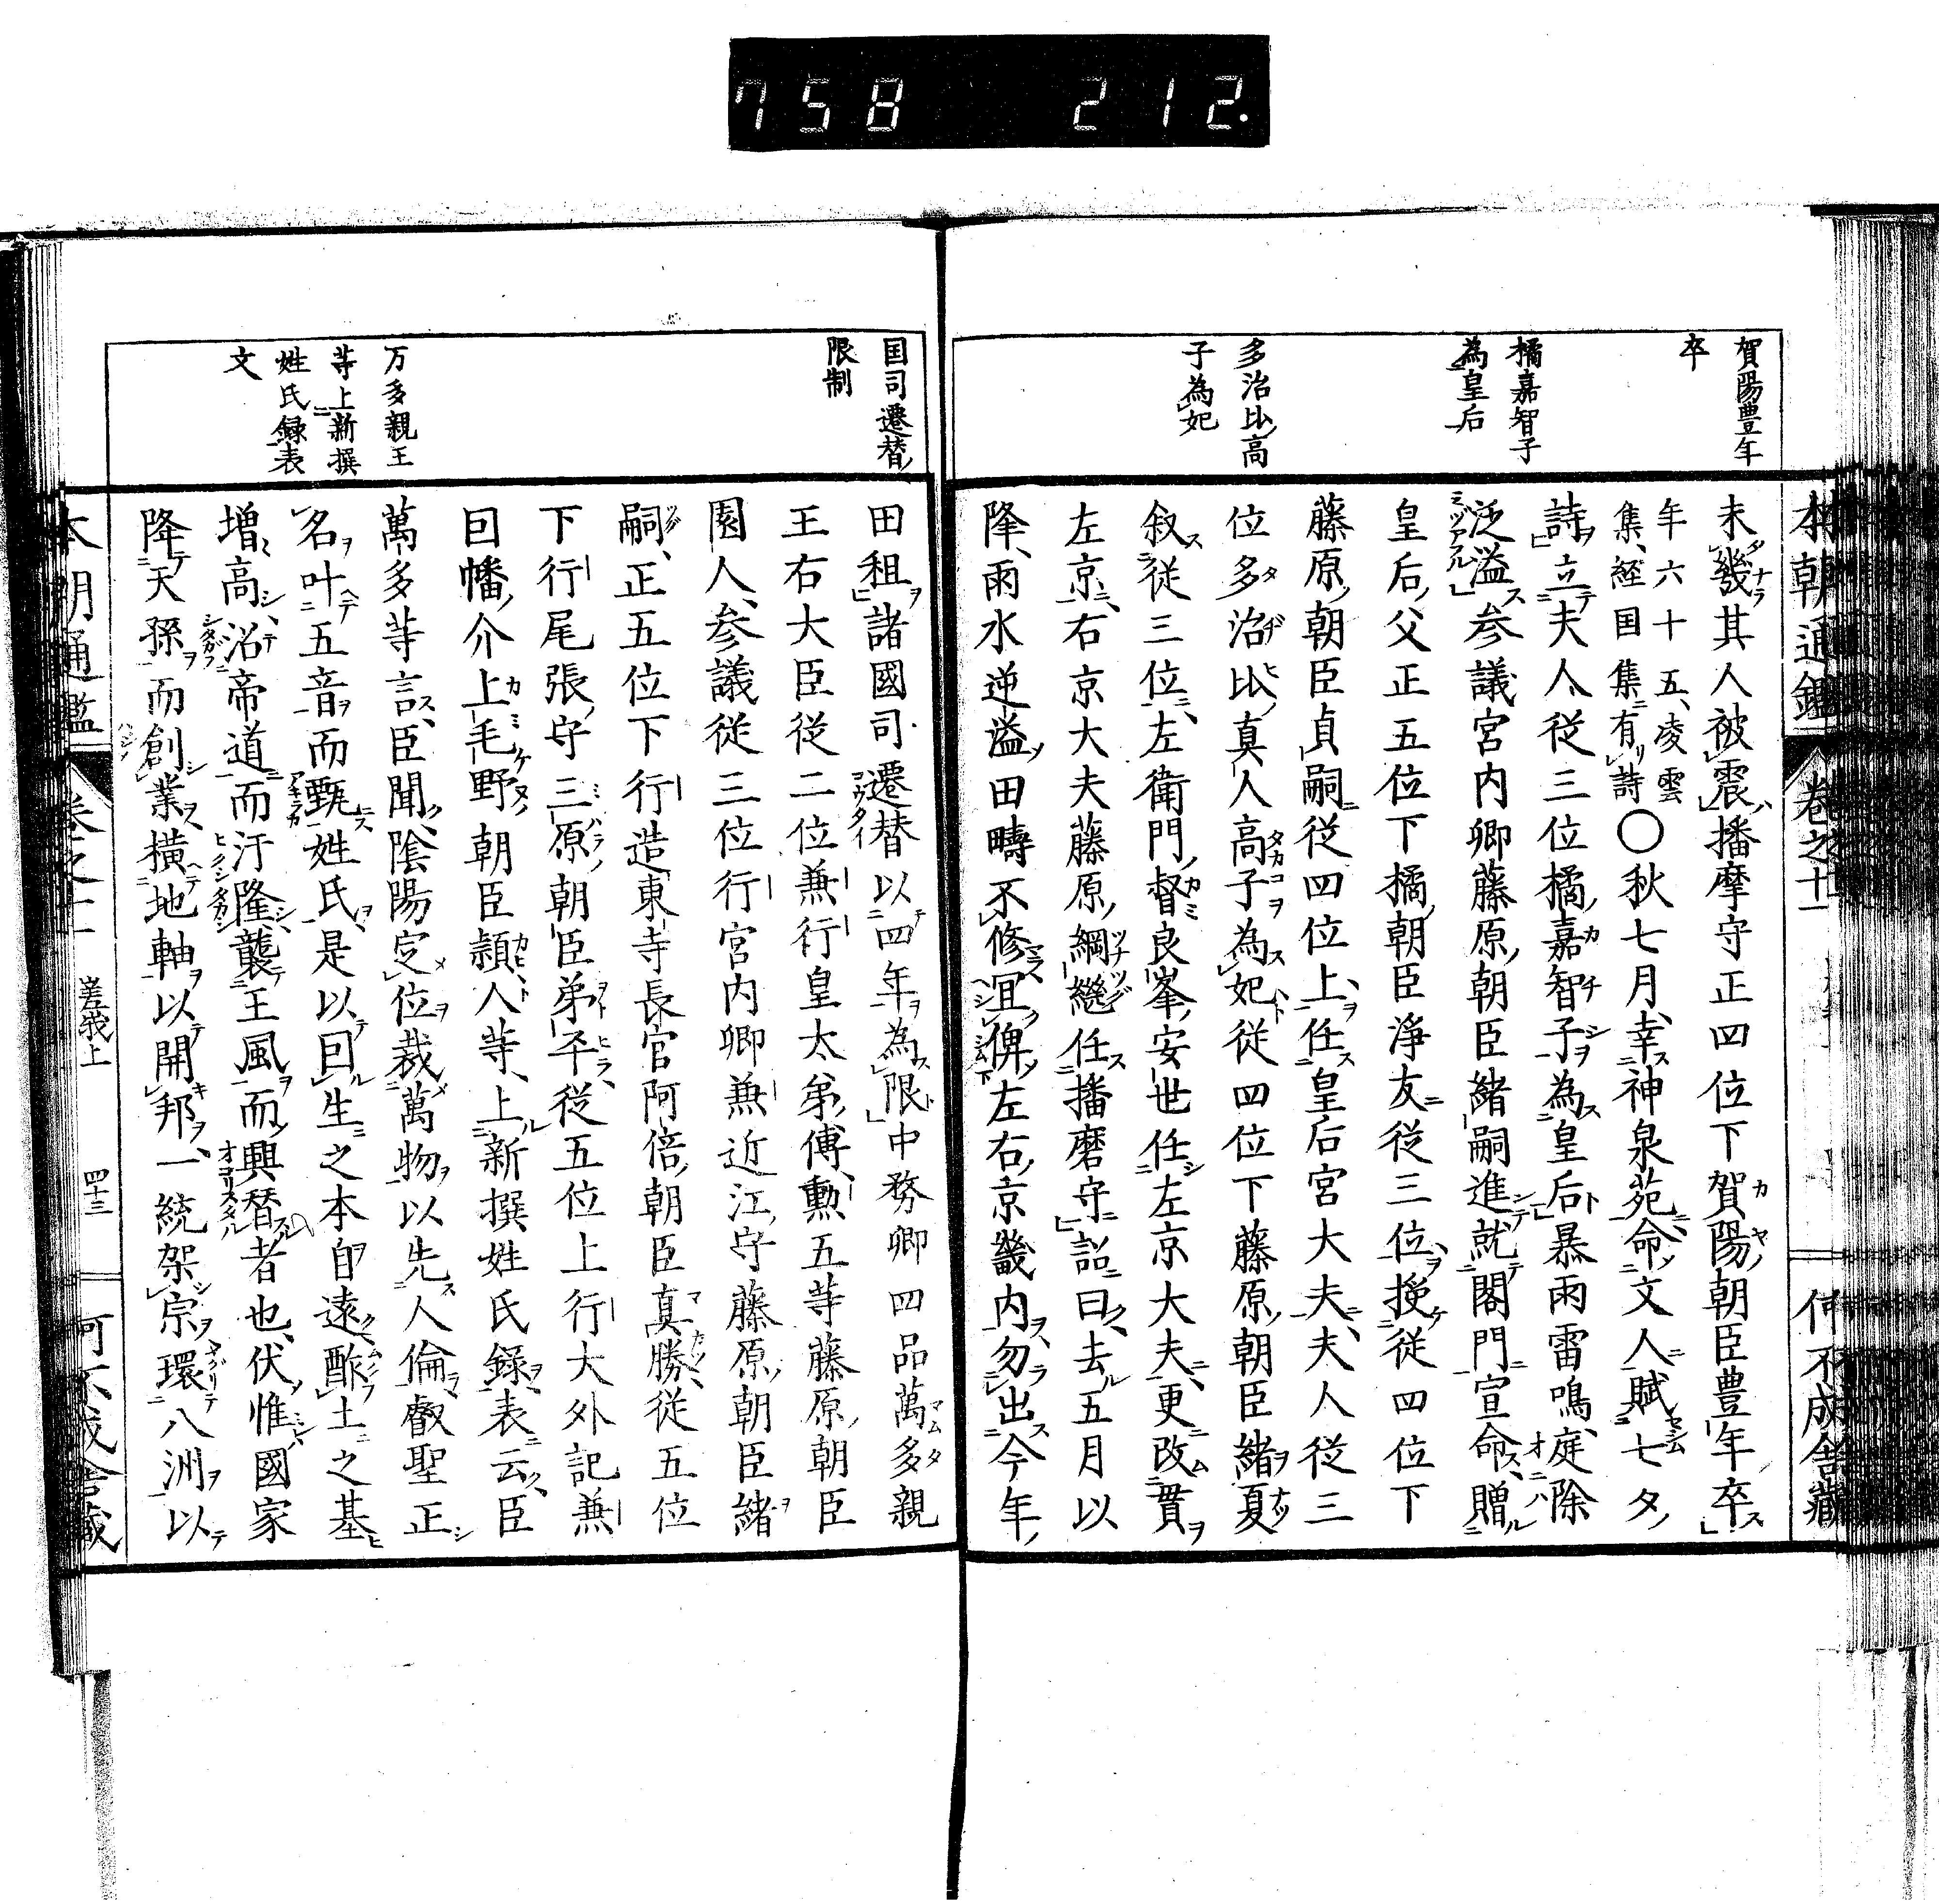 758 212.
本朝通鑑 巻之十一 何不成舎蔵
賀陽豊年
卒
橘嘉智子
為皇后
多治比高
子為妃
未幾其人被震播摩守正四位下賀陽朝臣豊年卒
年六十五凌雲
集経国集有詩
○秋七月幸神泉苑命文人賦七夕
詩立夫人従三位橘嘉智子為皇后暴雨雷鳴庭除
泛溢参議宮内卿藤原朝臣緒嗣進就閣門宣命贈
皇后父正五位下橘朝臣浄友従三位授従四位下
藤原朝臣貞嗣従四位上任皇后宮大夫夫人従三
位多治比真人高子為妃従四位下藤原朝臣緒夏
叙従三位左衛門督良峯安世任左京大夫更改貫
左京右京大夫藤原綱継任播磨守詔曰去五月以
降雨水逆溢田疇不修冝俾左右京畿内勿出今年
国司遷替
限制
万多親王
等上新撰
姓氏録表
文
田租諸國司遷替以四年為限中務卿四品萬多親
王右大臣従二位兼行皇太弟傅勲五等藤原朝臣
園人参議従三位行宮内卿兼近江守藤原朝臣緒
嗣正五位下行造東寺長官阿倍朝臣真勝従五位
下行尾張守三原朝臣弟平従五位上行大外記兼
因幡介上毛野朝臣頴人等上新撰姓氏録表云臣
萬多等言臣聞陰陽定位裁萬物以先人倫叡聖正
名叶五音而甄姓氏是以因生之本自遠酢土之基
増高沿帝道而汙隆襲王風而興替者也伏惟國家
降天孫而創業横地軸以開邦一統架宗環八洲以
本朝通鑑 巻之十一 嵯峨上 四十三 何不成舎蔵